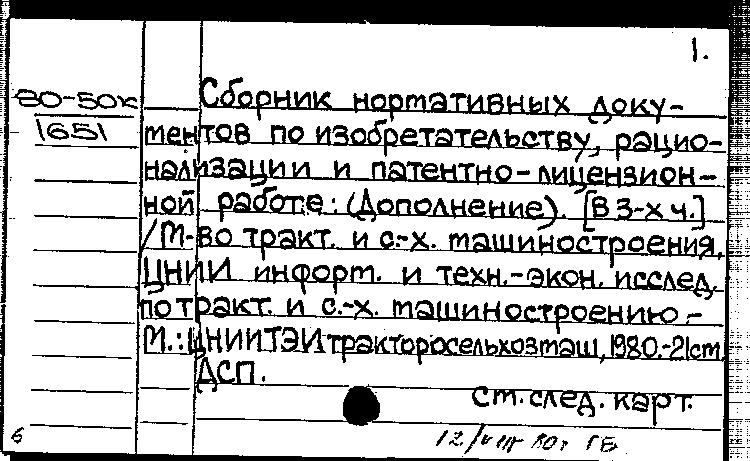 1.
80-50к
1651
Сборник нормативных доку-
ментов по изобретательству, рацио-
нализации и патентно-лицензион-
ной работе: (Дополнение). [В 3-х ч.]
/М-во тракт. и с.-х. машиностроения,
ЦНИИ информ. и техн.-экон. исслед.
по тракт. и с.-х. машиностроению.-
М.: ЦНИИТЭИтракторосельхозмаш, 1980.-21см.
ДСП.
ст. след. карт.
6
12/VIII 80г